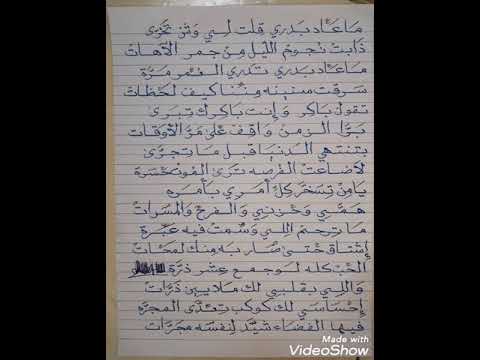 ما عاد بدري قلت لي وش تحرى
ذابت نجوم الليل من جمر الآهات
ما عاد بدري تدري العمر مرة
سرقت سنينه مننا كيف لحظات
تقول باكر وإنت باكرك تبرى
برا الزمن واقف على مر الأوقات
بتنتهي الدنيا قبل ما تجرى
لا ضاعت الفرصه ترى الموت حسرة
يا من تسخر كل أمري بأمره
همي وحزني والفرح والمسرات
ما ترحم اللي وسمت فيه عبرة
إشتاق حتى صار به منك لمحات
الحب كله لو جمع عشر ذرة
واللي بقلبي لك ملايين ذرات
إحساسي لك كوكب تعدى المجره
فيها الفضاء شيد لنفسه مجرات
Made with
VideoShow